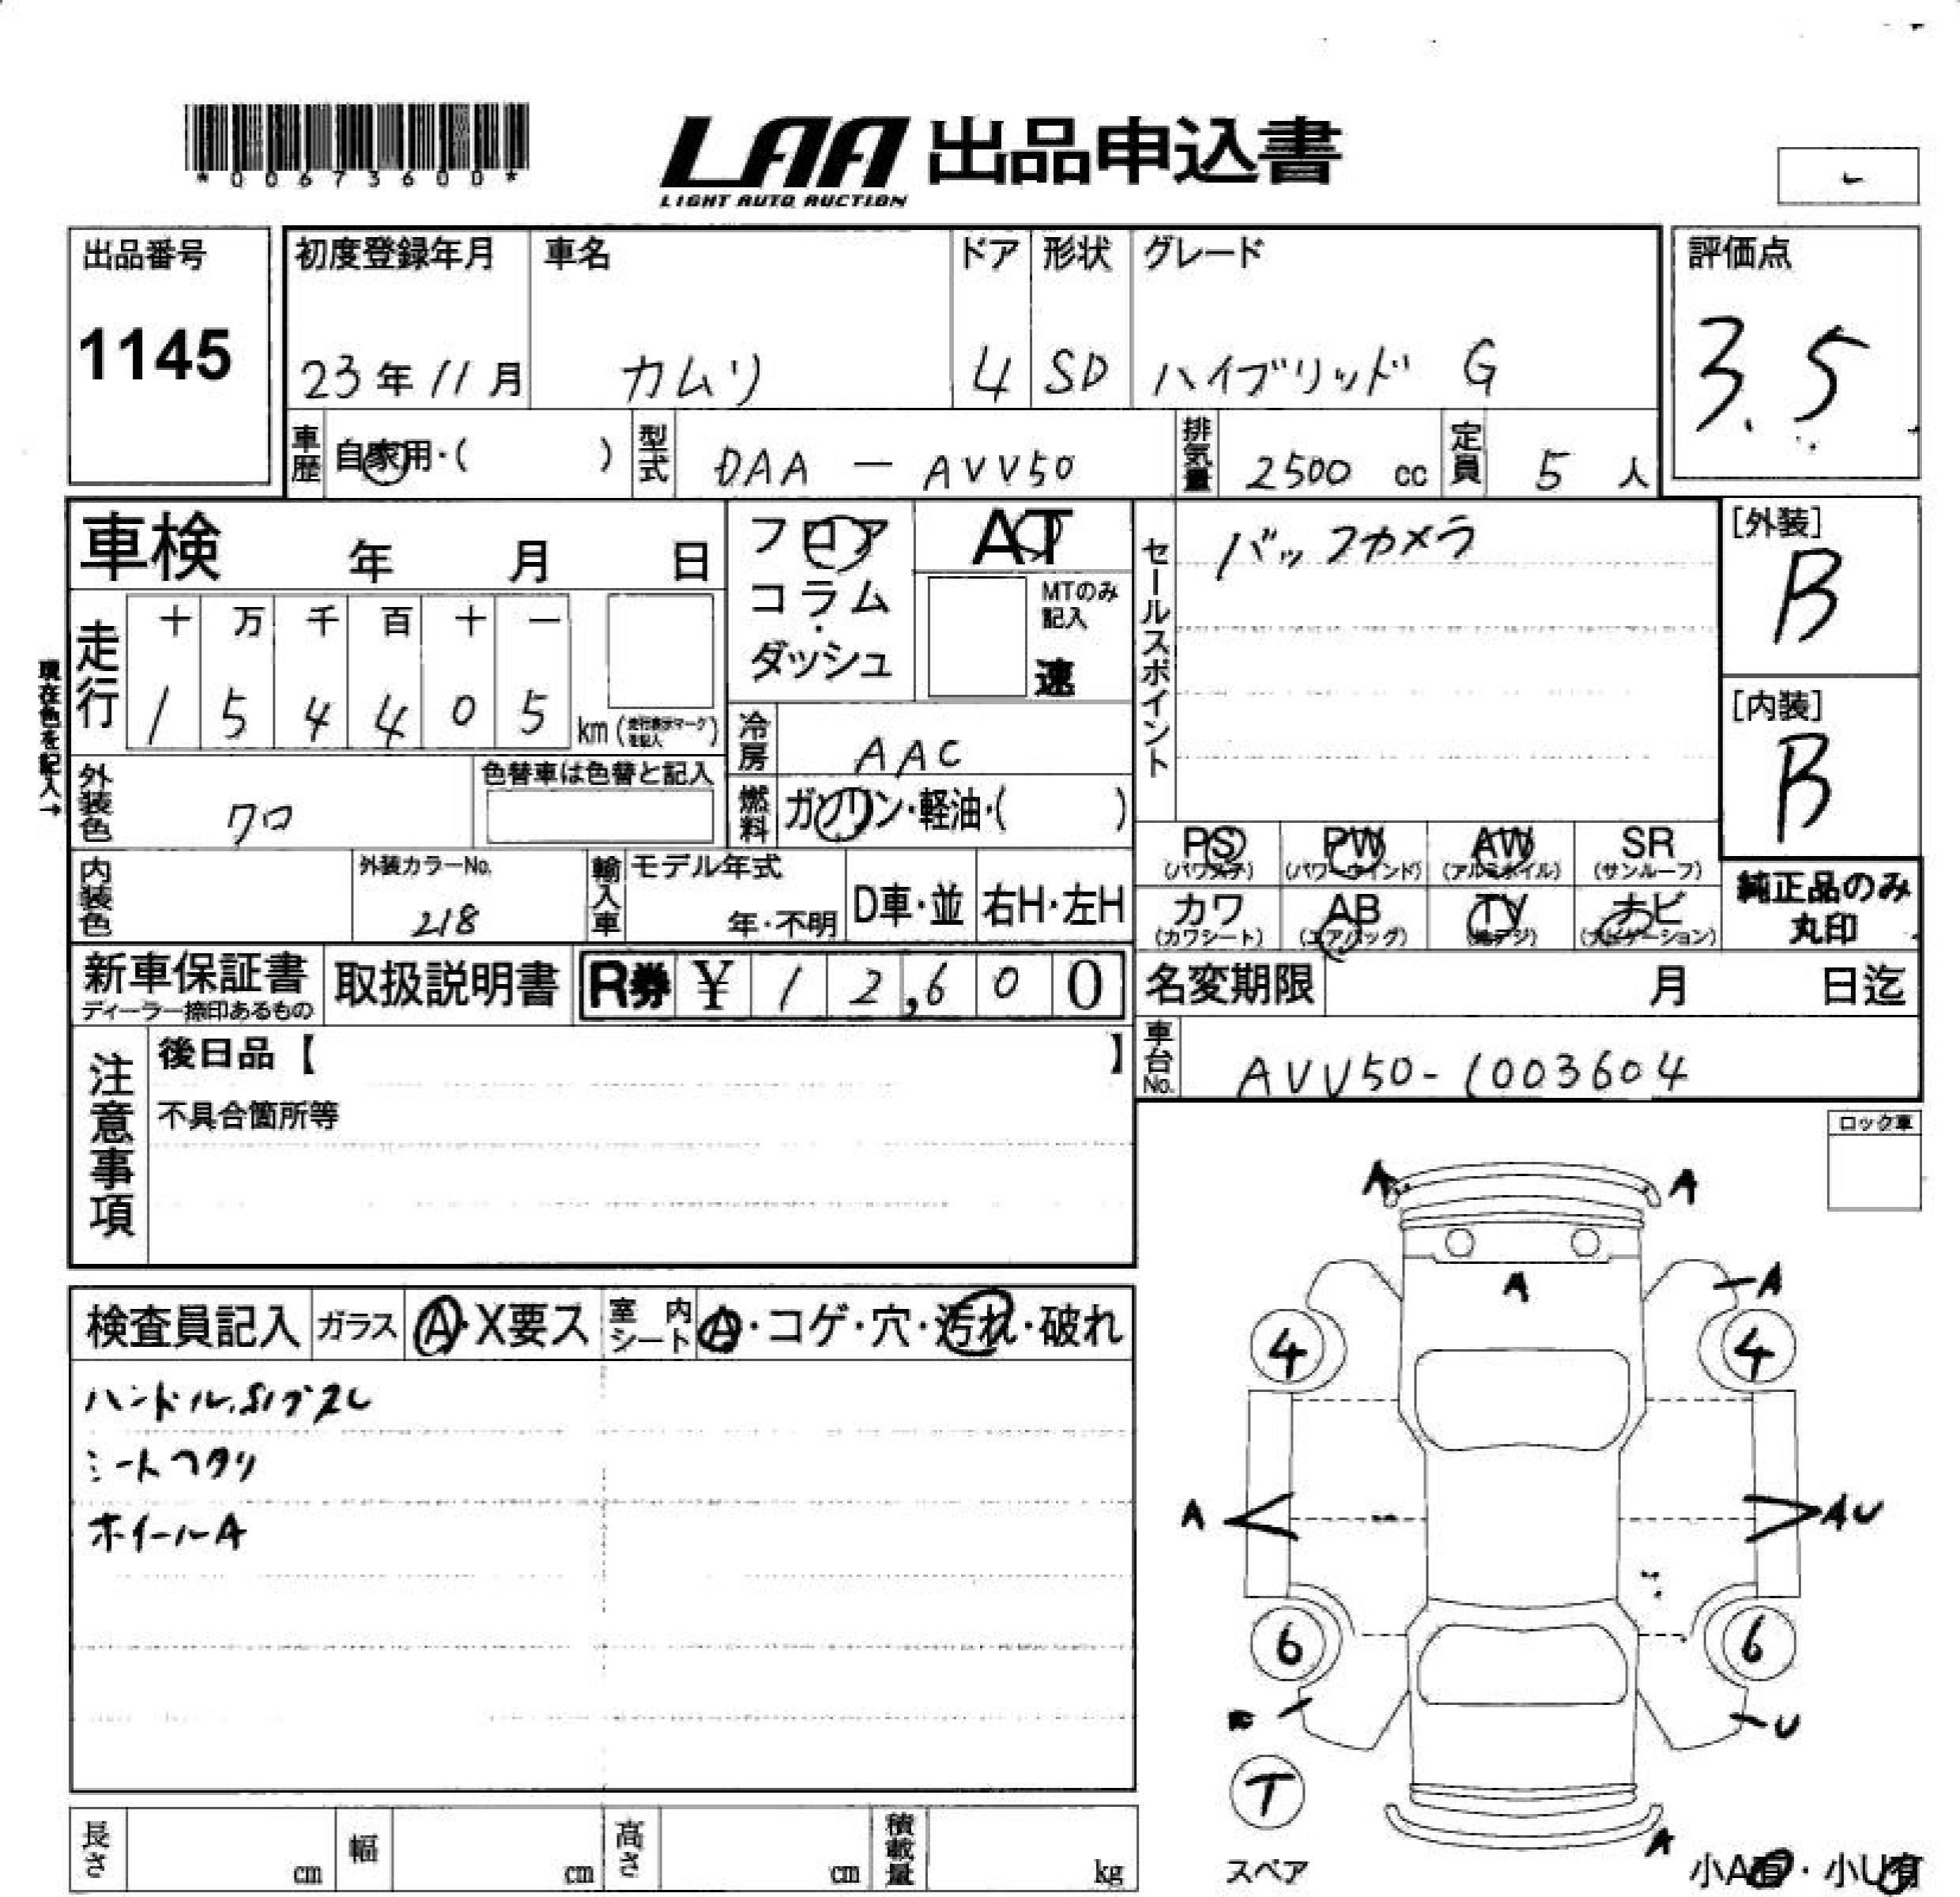 *00673600*
LAA 出品申込書
LIGHT AUTO AUCTION
出品番号
1145
初度登録年月 車名 ドア 形状 グレード
23年11月 カムリ 4 SD ハイブリッド G
評価点
3.5
車歴 自家用・( ) 型式 DAA - AVV50 排気量 2500 cc 定員 5 人
車検 年 月 日
フロア
コラム
・
ダッシュ
AT
MTのみ
記入
速
セールスポイント
バックカメラ
[外装]
B
[内装]
B
現在色を記入→
走行
十 万 千 百 十 一
1 5 4 4 0 5 km(走行表示マークを記入)
冷房 AAC
外装色 クロ
色替車は色替と記入
燃料 ガソリン・軽油・( )
PS PW AW SR
(パワステ) (パワーウインド) (アルミホイル) (サンルーフ)
カワ AB TV ナビ
(カワシート) (エアバッグ) (地デジ) (ナビゲーション)
純正品のみ
丸印
内装色
外装カラーNo.
218
輸入車 モデル年式
年・不明 D車・並 右H・左H
新車保証書
ディーラー捺印あるもの
取扱説明書
R券 ¥ 1 2,6 0 0
名変期限 月 日迄
車台No. AVV50-1003604
注意事項
後日品【 】
不具合箇所等
ロック車
検査員記入 ガラス A・X要ス 室内シート A・コゲ・穴・汚れ・破れ
ホイールA
A A
A
A
4 4
A AU
6 6
U
T
スペア
A
小A有・小U有
長さ cm 幅 cm 高さ cm 積載量 kg